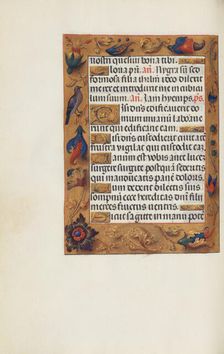 nostri quesivi bona tibi.
lona pñ. añ. Nigra sũ sed
formosa filia ihrlm ideo dilexit
me rex et introduxit me in cubicu
lum suum. añ. Iam hyemps. ps.
Nisi dñs edificaverit do
mum in vanũ labora
runt qui edificant eam.
Nisi dñs custodierit civitatẽ
frustra vigilat qui custodit eam.
vanum est vobis ante lucẽ
surgere surgite postquam sederitis
qui manducatis panẽ doloris.
Cum dederit dilectis suis
sompnũ ecce hereditas dñi filii
merces fructus ventris.
Sicut sagitte in manu potẽ